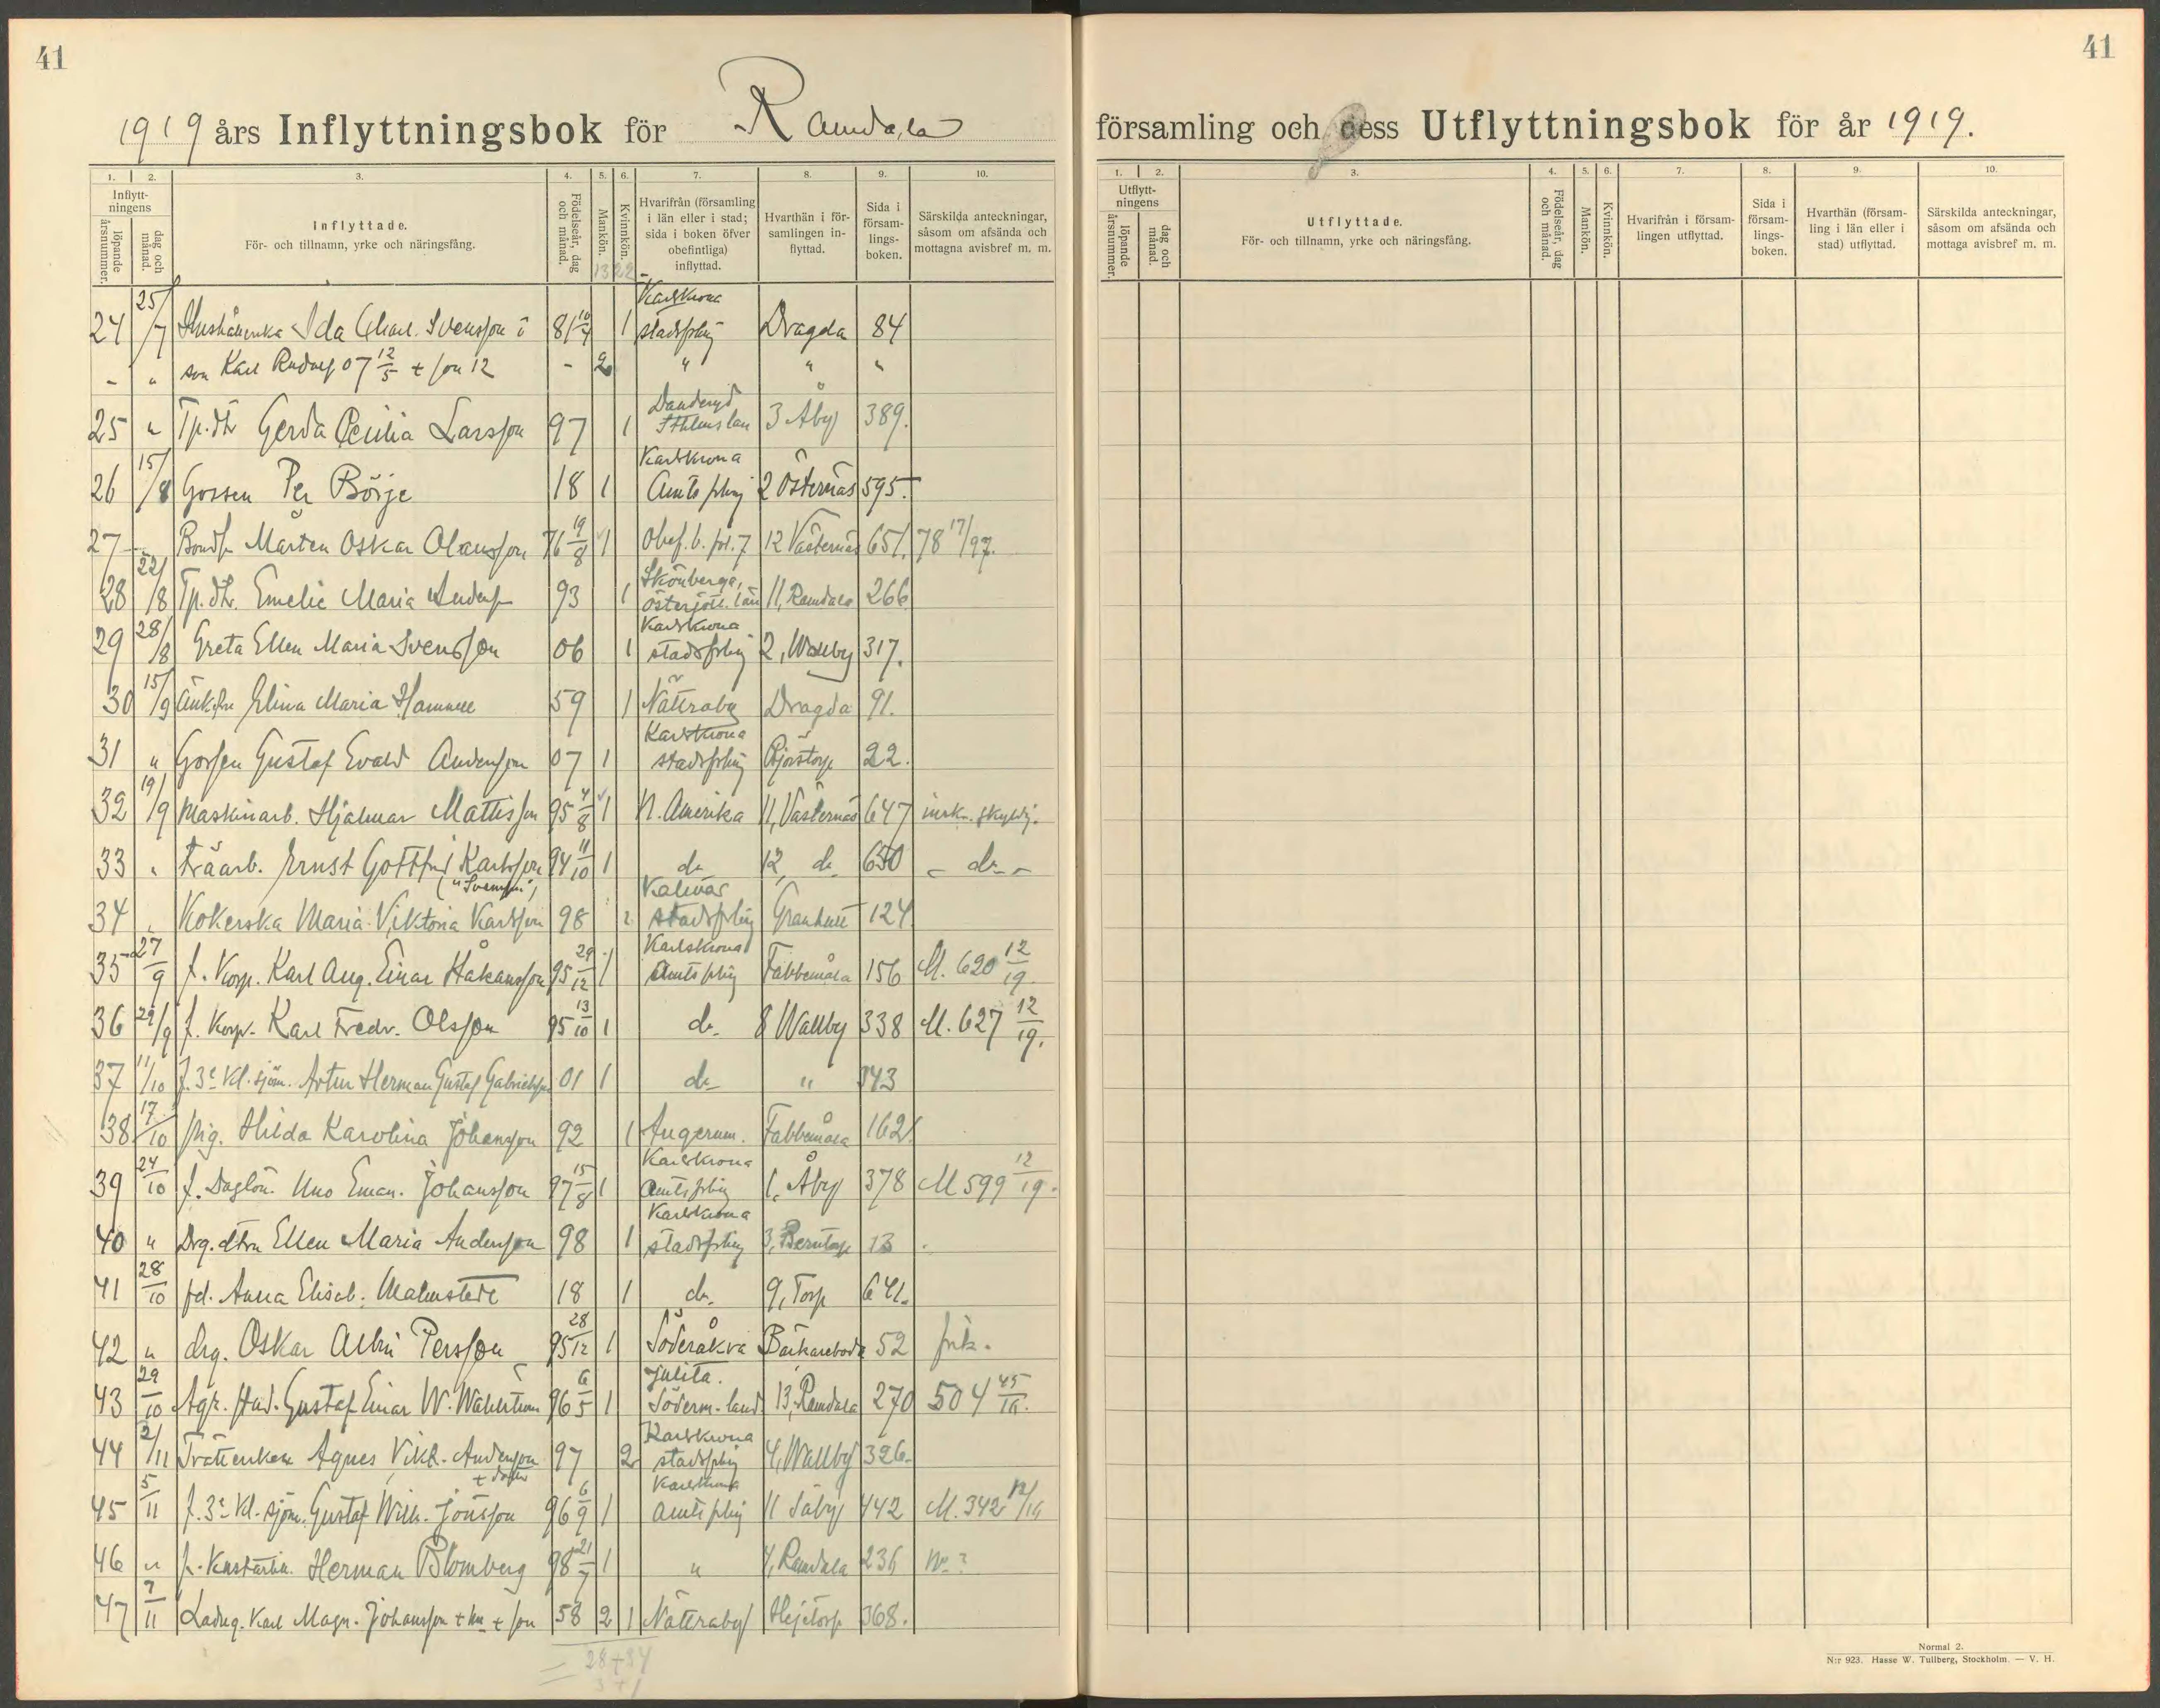 41
1919 års Inflyttningsbok för Ramdala
1. 2. 3. 4. 5. 6. 7. 8. 9. 10.
Inflyttningens
löpande årsnummer.
dag och månad.
Inflyttade.
För- och tillnamn, yrke och näringsfång.
Födelseår, dag och månad.
Mankön.
Kvinnkön.
Hvarifrån (församling i län eller i stad; sida i boken öfver obefintliga) inflyttad.
Hvarthän i församlingen inflyttad.
Sida i församlingsboken.
Särskilda anteckningar, såsom om afsända och mottagna avisbref m. m.
13 22
24 25/7 Ida Svensson 81 10/4 1 Karlskrona stadsfslg Dragda 84
- " son Karl Rudolf 07 12/5 + son 12 - 2 " " "
25 " Tp.dtr Gerda Cecilia Larsson 97 1 Danderyd Sthlms län 3 Åby 389.
26 15/8 Gossen Per Börje 18 1 Karlskrona Amtsfslg 2 Östernäs 595.
27 Mårten Oskar Olausson 76 19/8 1 Obef. b. fol. 7 12 Västernäs 651. 78 17/97.
28 22/8 Tp.dtr. Emelie Maria Anders 93 1 Skönberga, Österjötl. län 11, Ramdala 266
29 28/8 Greta Ellen Maria Svensson 06 1 Karlskrona stadsfslg 2, Wallby 317.
30 15/9 Elina Maria 59 1 Nättraby Dragda 91.
31 " Gossen Gustaf Evald Andersson 07 1 Karlskrona stadsfslg 22.
32 19/9 Maskinarb. Hjalmar Mattisson 95 4/8 1 N. Amerika 11, Västernäs 647 inskr. skyldig.
33 " Träarb. Ernst Gottfrid Karlsson 94 11/10 1 do 12, do 650 - do -
("Svensson")
34 " Kokerska Maria Viktoria Karlsson 98 2 Kalmar stadsfslg Granhult 124
35 27/9 f. Korp. Karl Aug. Einar Håkansson 95 29/12 1 Karlskrona Amtsfslg Fäbbemåla 156 M. 620 12/19.
36 29/9 f. Korp. Karl Fredr. Olsson 95 13/10 1 do 8 Wallby 338 M. 627 12/19.
37 11/10 f. 3e kl. sjöm. Artur Herman Gustaf Gabrielsson 01 1 do " 343
38 17/10 pig. Hilda Karolina Johansson 92 1 Augerum. Fäbbemåla 162.
39 24/10 f. Uno Eman. Johansson 97 15/8 1 Karlskrona Amtsfslg 1, Åby 378 M 599 12/19.
40 " Drg. dtrn Ellen Maria Andersson 98 1 Karlskrona stadsfslg 3, Berntorp 13
41 28/10 fd. Anna Elisab. Malmstedt 18 1 do 9, Torp 641.
42 " drg. Oskar Albin Persson 95 28/12 1 Söderåkra 52 frik.
43 29/10 Agr. stud. Gustaf Einar W. 96 6/5 1 Julita. Söderm.land 13, Ramdala 270 504 45/16.
44 2/11 Agnes Vikt. Andersson + dotter 97 2 Karlskrona stadsfslg 4, Wallby 326.
45 5/11 f. 3e kl. sjöm. Gustaf Wilh. Jönsson 96 6/9 1 Karlskrona Amtsfslg 11 Säby 442 M. 342 12/19
46 " Herman Blomberg 98 21/7 1 " 4, Ramdala 236 No ?
47 7/11 Ladug. Karl Magn. Johansson + hu + son 58 2 1 Nättraby Hejetorp 368.
28+34
3+1
41
församling och dess Utflyttningsbok för år 1919.
1. 2. 3. 4. 5. 6. 7. 8. 9. 10.
Utflyttningens
löpande årsnummer.
dag och månad.
Utflyttade.
För- och tillnamn, yrke och näringsfång.
Födelseår, dag och månad.
Mankön.
Kvinnkön.
Hvarifrån i församlingen utflyttad.
Sida i församlingsboken.
Hvarthän (församling i län eller i stad) utflyttad.
Särskilda anteckningar, såsom om afsända och mottaga avisbref m. m.
Normal 2.
N:r 923. Hasse W. Tullberg, Stockholm. — V. H.